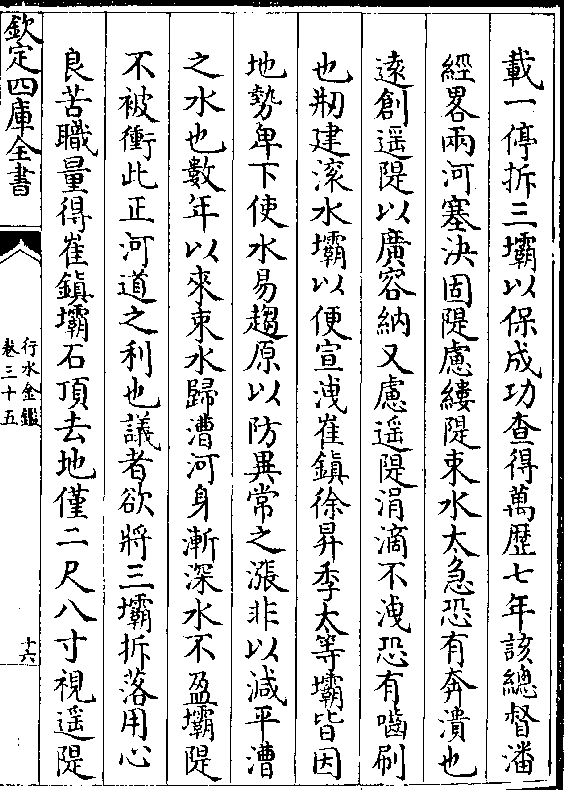 載一停拆三壩以保成功查得萬歴七年該總督潘
經畧兩河塞決固隄慮縷隄束水太急恐有奔潰也
逺創遥隄以廣容納又慮遥隄涓滴不洩恐有嚙刷
也剏建滚水壩以便宣洩崔鎮徐昇季太等壩皆因
地勢卑下使水易趨原以防異常之漲非以減平漕
之水也數年以來束水歸漕河身漸深水不盈壩隄
不被衝此正河道之利也議者欲將三壩拆落用心
良苦職量得崔鎮壩石頂去地僅二尺八寸視遥隄
欽定四庫全書
行水金鑑
卷三十五
十六